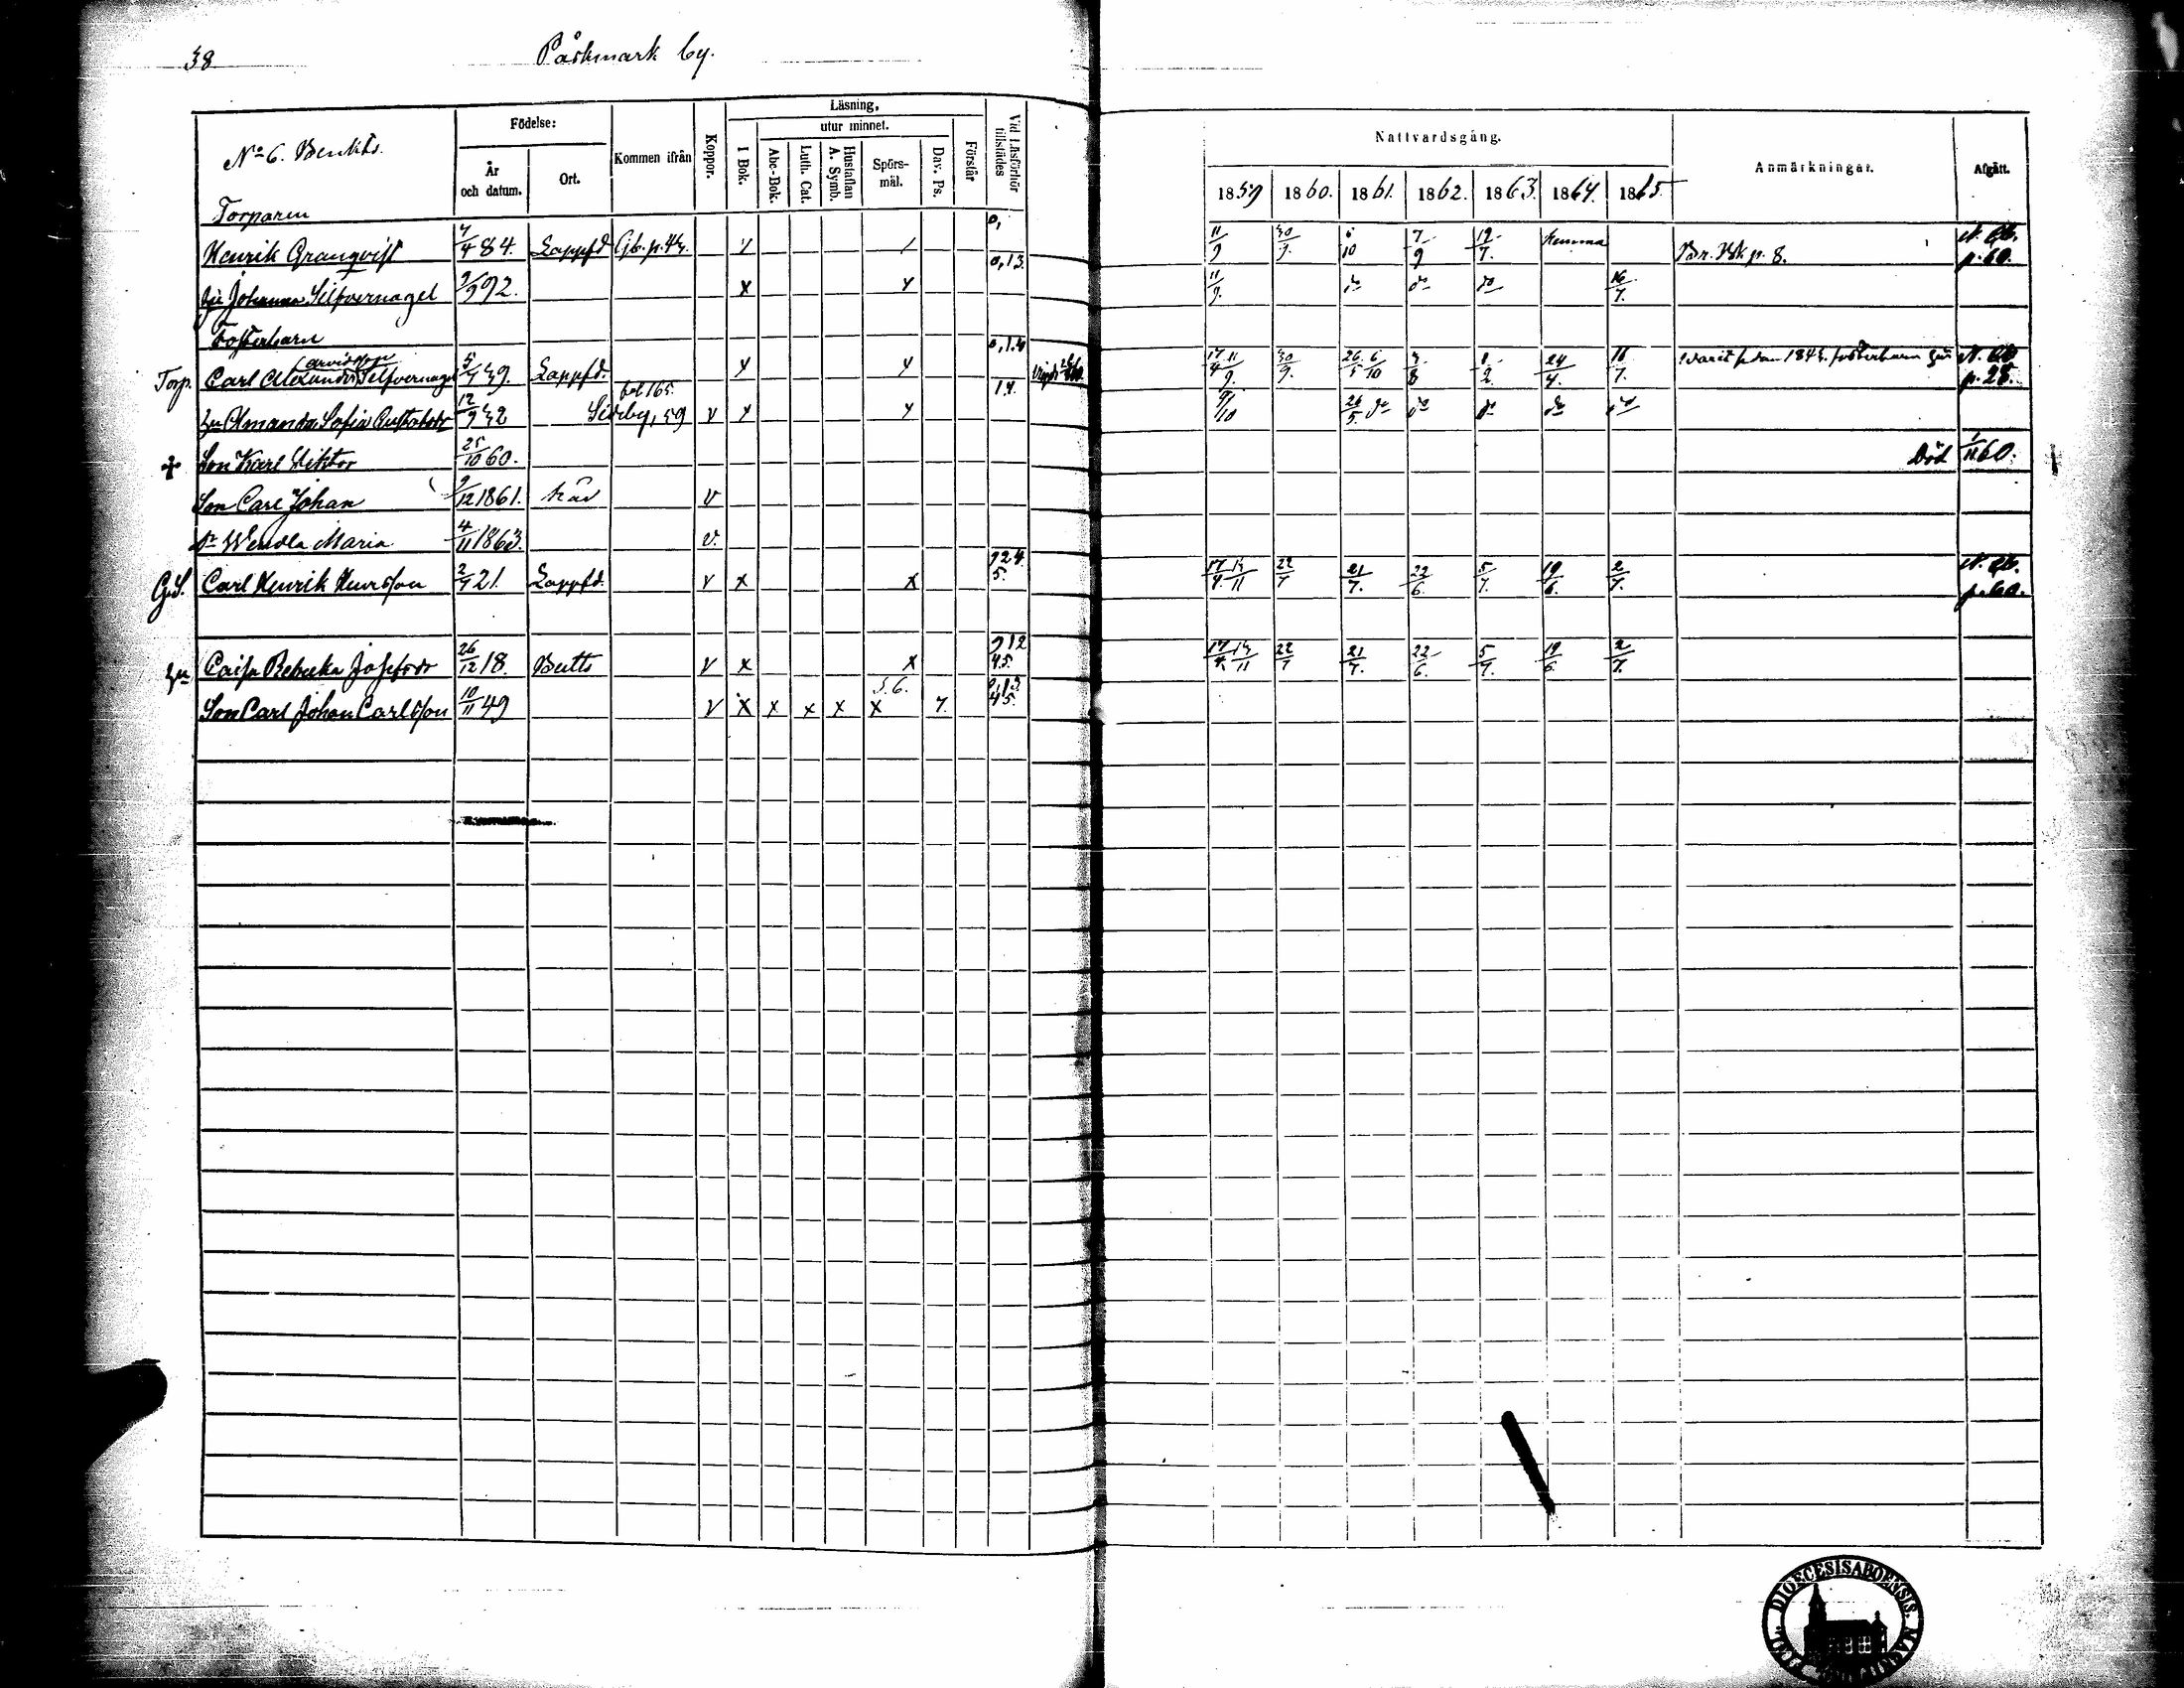 38
Påskmark by.
No 6. Benkts.
Födelse:
År och datum.
Ort.
Kommen ifrån
Koppor.
Läsning.
I Bok.
utur minnet.
Abc-Bok.
Luth. Cat.
Hustaflan A. Symb.
Spörs-mål.
Dav. Ps.
Förstår
Vid Läsförhör tillstädes
Nattvardsgång.
1859 1860. 1861. 1862. 1863. 1864. 1865.
Anmärkningar.
Afgått.
Torparen
Henrik Granqvist 7/4 84. Lappfd Gb. p. 44. 11/9 30/9. 6/10 7/9 19/7. hemma Br. Bk p. 8. N. Gb. p. 60.
Johanna Silfvernagel 9/9 92. x 0,13. 11/9. do do do 16/7.
Fosterbarn
Torp. Carl Alexander Arvidsson Silfvernagel 5/7 39. Lappfd. 17/4 11/9. 30/9. 26/5 6/10 24/4. 16/7. varit sedan 1843. fosterbarn N. Gb p. 28.
Amanda Sofia 12/9 42 fol 165. Sideby, 59 v 14. 9/10 26/5. do do do do do
+ Son Karl Viktor 25/10 60. Död 1/11 60.
Son Carl Johan 9/12 1861. här v
Dr Wendla Maria 4/11 1863. v.
G.S. Carl Henrik Henrsson 2/7 21. Lappfd. v x x 924. 5. 17/4. 13/11 22/7 21/7. 22/6. 5/7. 19/6. 2/7. N. Gb. p. 60.
Caisa Rebecka Josefsdr 26/12 18. v x x 912 45. 17/4. 13/11 22/7 21/7. 22/6. 5/7. 19/6. 2/7.
Son Carl Johan Carlsson 10/11 49 v x x x x 5.6. x 7. 45.
DIOECESIS ABOENSIS